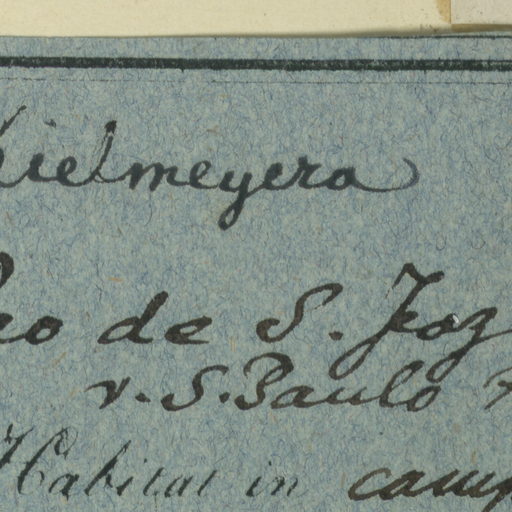 Kielmeyera
de S. Joz
v. S. Paulo
Habitat in camp